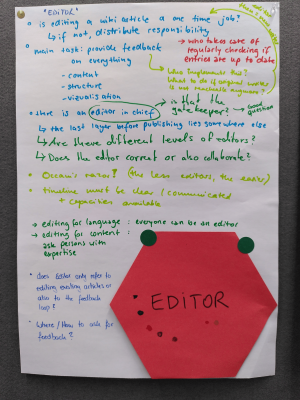 "EDITOR"
is editing a wiki article a one time job?
↳ if not, distribute responsibility
→ who takes care of
regularly checking if
entries are up to date
main task: provide feedback
on everything
- content
- structure
- vizualisation
→ Who implements this?
What to do if original writer
is not reachable anymore?
→ is that the
gatekeeper?
→ Good
question
there is an editor in chief
↳ the last layer before publishing lies somewhere else
↳ Are there different levels of editors?
↳ Does the editor correct or also collaborate?
Occam's razor? (the less editors, the easier)
timeline must be clear / communicated
+ capacities available
→ editing for language : everyone can be an editor
→ editing for content :
ask persons with
expertise
does editor only refer to
editing existing articles or
also to the feedback
loop?
Where / How to ask for
feedback?
EDITOR